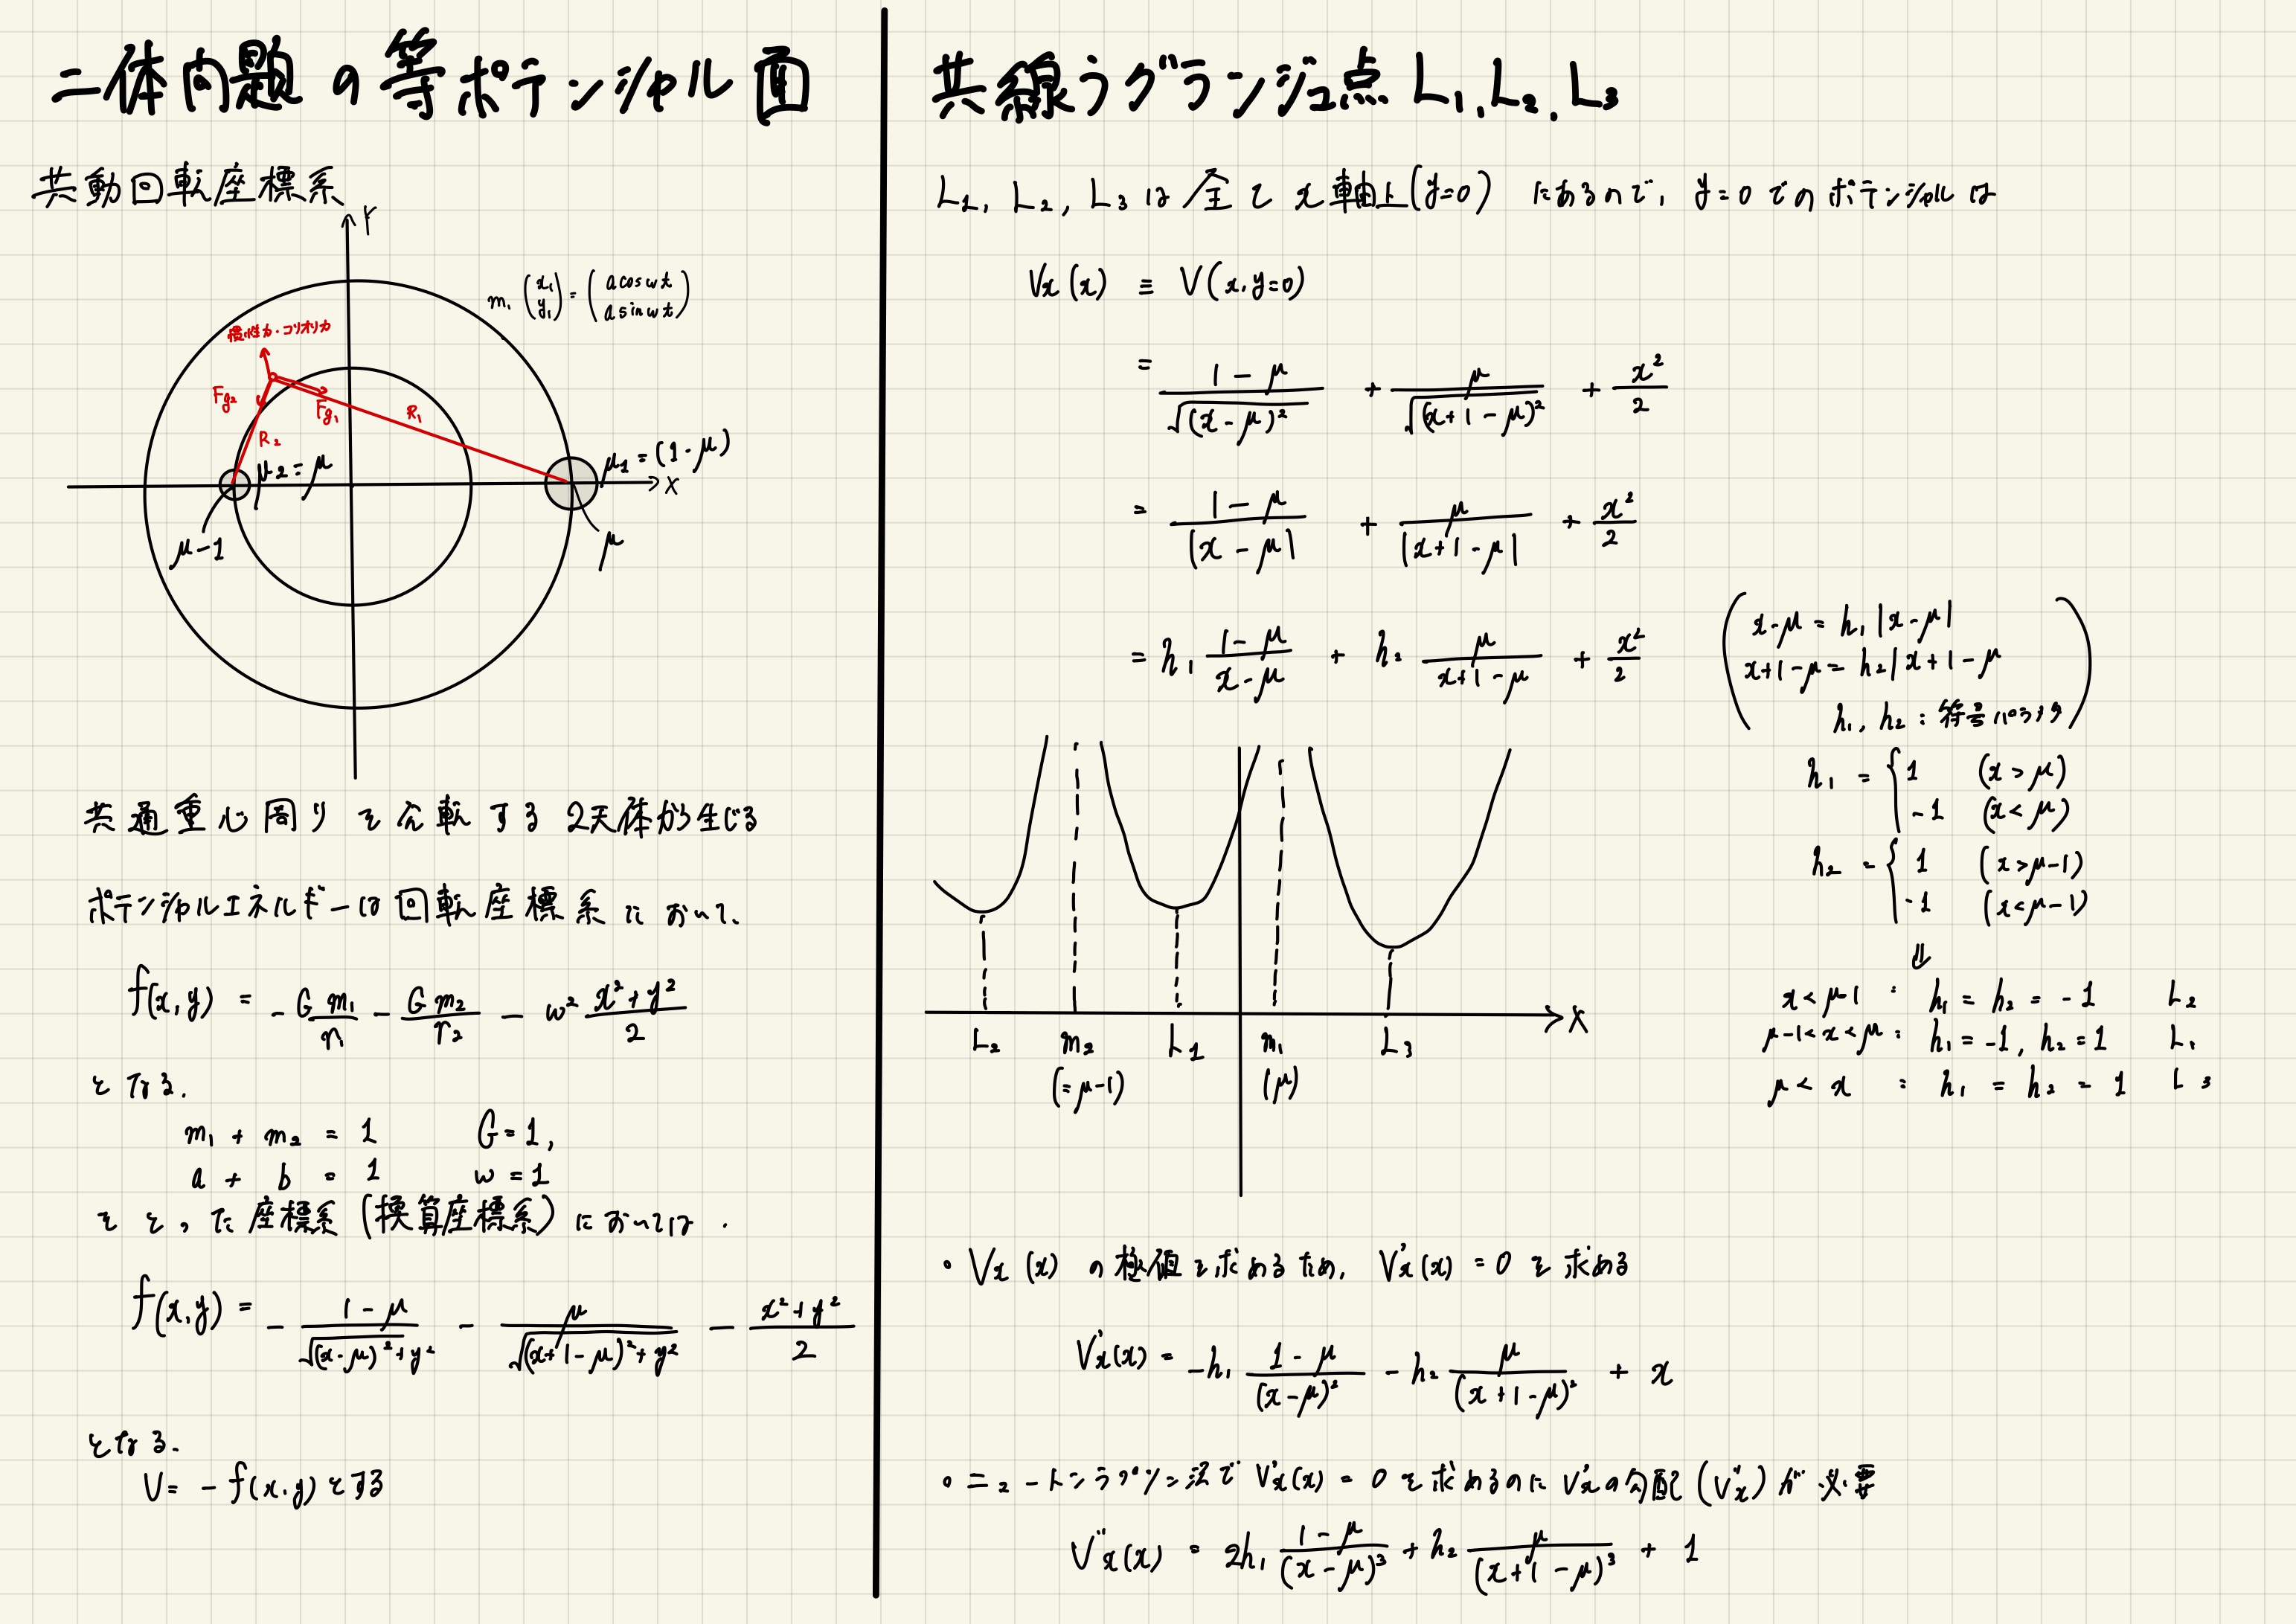 二体問題の等ポテンシャル面
共動回転座標系
Y
m₁ (x₁ y₁) = (a cos ωt a sin ωt)
慣性力・コリオリ力
Fg₂
Fg₁
R₁
R₂
μ₂=μ
μ₁=(1-μ)
X
μ-1
μ
共通重心周りを公転する2天体から生じる
ポテンシャルエネルギーは回転座標系において、
f(x,y) = - G m₁/r₁ - G m₂/r₂ - ω² (x²+y²)/2
となる.
m₁ + m₂ = 1 G=1,
a + b = 1 ω=1
をとった座標系(換算座標系)においては.
f(x,y) = - (1-μ)/√((x-μ)²+y²) - μ/√((x+1-μ)²+y²) - (x²+y²)/2
となる.
V= -f(x,y)とする
共線ラグランジュ点 L₁, L₂, L₃
L₁, L₂, L₃は全てx軸上(y=0) にあるので, y=0でのポテンシャルは
Vx(x) ≡ V(x,y=0)
= (1-μ)/√((x-μ)²) + μ/√((x+1-μ)²) + x²/2
= (1-μ)/|x-μ| + μ/|x+1-μ| + x²/2
= h₁ (1-μ)/(x-μ) + h₂ μ/(x+1-μ) + x²/2
x-μ = h₁|x-μ|
x+1-μ = h₂|x+1-μ
h₁, h₂ : 符号パラメタ
h₁ = { 1 (x>μ)
-1 (x<μ)
h₂ = { 1 (x>μ-1)
-1 (x<μ-1)
⇓
x<μ-1 : h₁ = h₂ = -1 L₂
μ-1<x<μ : h₁ = -1, h₂ = 1 L₁
μ< x : h₁ = h₂ = 1 L₃
X
L₂ m₂ L₁ m₁ L₃
(=μ-1) (μ)
∘ Vx(x) の極値を求めるため, V'x(x) = 0 を求める
V'x(x) = -h₁ (1-μ)/(x-μ)² - h₂ μ/(x+1-μ)² + x
∘ ニュートンラプソン法で V'x(x) = 0 を求めるのに V'xの勾配 (V''x) が必要
V''x(x) = 2h₁ (1-μ)/(x-μ)³ + h₂ μ/(x+1-μ)³ + 1